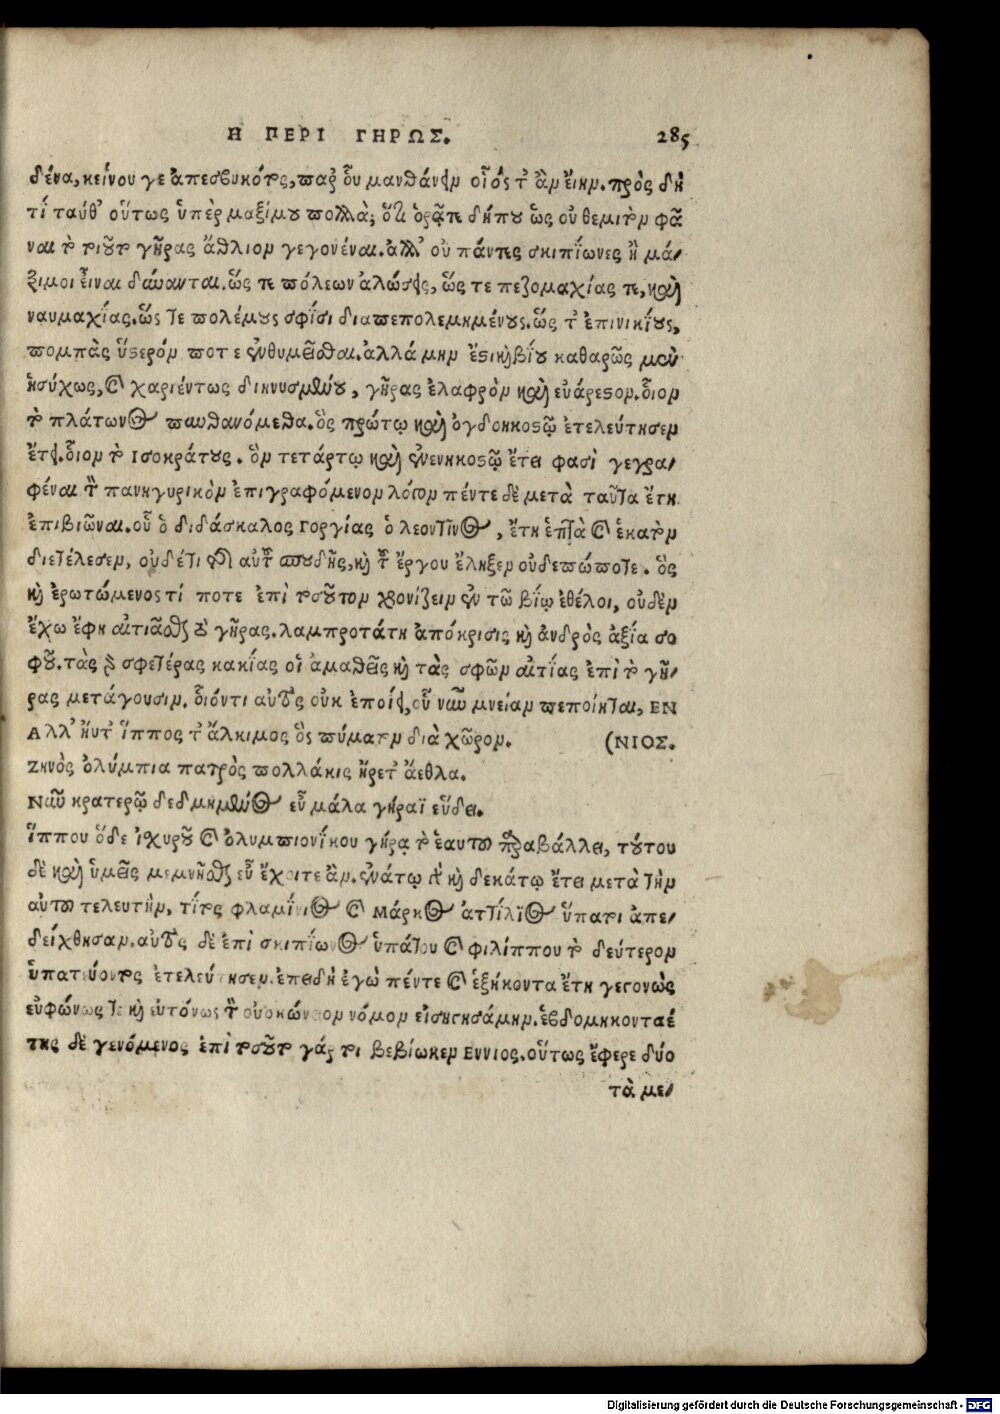 Η ΠΕΡΙ ΓΗΡΩΣ. 285
δένα, κείνου γε ἀπεσβυκότος, παρ' οὗ μανθάνειν οἷός τ' ἂν εἴην. πρὸς δὴ
τί ταῦθ' οὕτως ὑπὲρ μαξίμου πολλὰ; ὅτι ὁρᾶτε δήπου ὡς οὐ θεμιτὸν φᾶ
ναι τὸ τοιοῦτον γῆρας ἄθλιον γεγονέναι. ἀλλ' οὐ πάντες σκιπίωνες ἢ μά-
ξιμοι εἶναι δύνανται. ὥς τε πόλεων ἁλώσεις, ὥς τε πεζομαχίας τε, καὶ
ναυμαχίας. ὥς τε πολέμους σφίσι διαπεπολεμημένους. ὥς τ' ἐπινικίους,
πομπὰς ὕστερόν ποτε ἐνθυμεῖσθαι. ἀλλά μην ἔστι καὶ βίου καθαρῶς μὲν
ἡσύχως, καὶ χαριέντως διηνυσμένου, γῆρας ἐλαφρὸν καὶ εὐάρεστον. οἷον
τὸ πλάτωνος πυνθανόμεθα. ὃς πρώτῳ καὶ ὀγδοηκοστῷ ἐτελεύτησεν
ἔτει. οἷον τὸ Ισοκράτους. ὃν τετάρτῳ καὶ ἐνενηκοστῷ ἔτει φασὶ γεγρα-
φέναι τὸν πανηγυρικὸν ἐπιγραφόμενον λόγον πέντε δὲ μετὰ ταῦτα ἔτη
ἐπιβιῶναι. οὗ ὁ διδάσκαλος Γοργίας ὁ λεοντῖνος, ἔτη ἑπτὰ καὶ ἑκατὸν
διετέλεσεν, οὐδέτι περὶ αὐτοῦ σπουδῆς, καὶ τοῦ ἔργου ἔληξεν οὐδεπώποτε. ὃς
καὶ ἐρωτώμενος τί ποτε ἐπὶ τοσοῦτον χρονίζειν ἐν τῷ βίῳ ἐθέλοι, οὐδὲν
ἔχω ἔφη αἰτιᾶσθαι τὸ γῆρας. λαμπροτάτη ἀπόκρισις καὶ ἀνδρὸς ἀξία σο
φοῦ. τὰς γὰρ σφετέρας κακίας οἱ ἀμαθεῖς καὶ τὰς σφῶν αἰτίας ἐπὶ τὸ γῆ-
ρας μετάγουσιν. ὁιόντι αὐτὸς οὐκ ἐποίει, οὗ νῦν μνείαν πεποίηται, ΕΝ
Αλλ' ἠΰτ' ἵππος τ' ἄλκιμος ὃς πύματον διὰ χῶρον. (ΝΙΟΣ.
Ζηνὸς ὀλύμπια πατρὸς πολλάκις ᾕρετ' ἄεθλα.
Νῦν κρατερῷ δεδμημένος εὖ μάλα γήραϊ εὕδει.
ἵππου ὅδε ἰσχυροῦ καὶ ὀλυμπιονίκου γήρᾳ τὸ ἑαυτοῦ παραβάλλει, τούτου
δὲ καὶ ὑμεῖς μεμνῆσθαι εὖ ἔχοιτε ἂν. ἐνάτῳ καὶ δεκάτῳ ἔτει μετὰ τὴν
αὐτοῦ τελευτὴν, τίτος φλαμίνιος καὶ Μάρκος ἀττίλϊος ὕπατοι ἀπε-
δείχθησαν. αὐτὸς δὲ ἐπὶ σκιπίωνος ὑπάτου καὶ φιλίππου τὸ δεύτερον
ὑπατεύοντος ἐτελεύτησεν. ἐπειδὴ ἐγὼ πέντε καὶ ἑξήκοντα ἔτη γεγονὼς
εὐφώνως τε καὶ εὐτόνως τὸν οὐοκώνιον νόμον εἰσηγησάμην. ἑβδομηκονταέ
της δὲ γενόμενος ἐπὶ τοσοῦτον γάρ τοι βεβίωκεν Εννιος. οὕτως ἔφερε δύο
τὰ με-
Digitalisierung gefördert durch die Deutsche Forschungsgemeinschaft - DFG